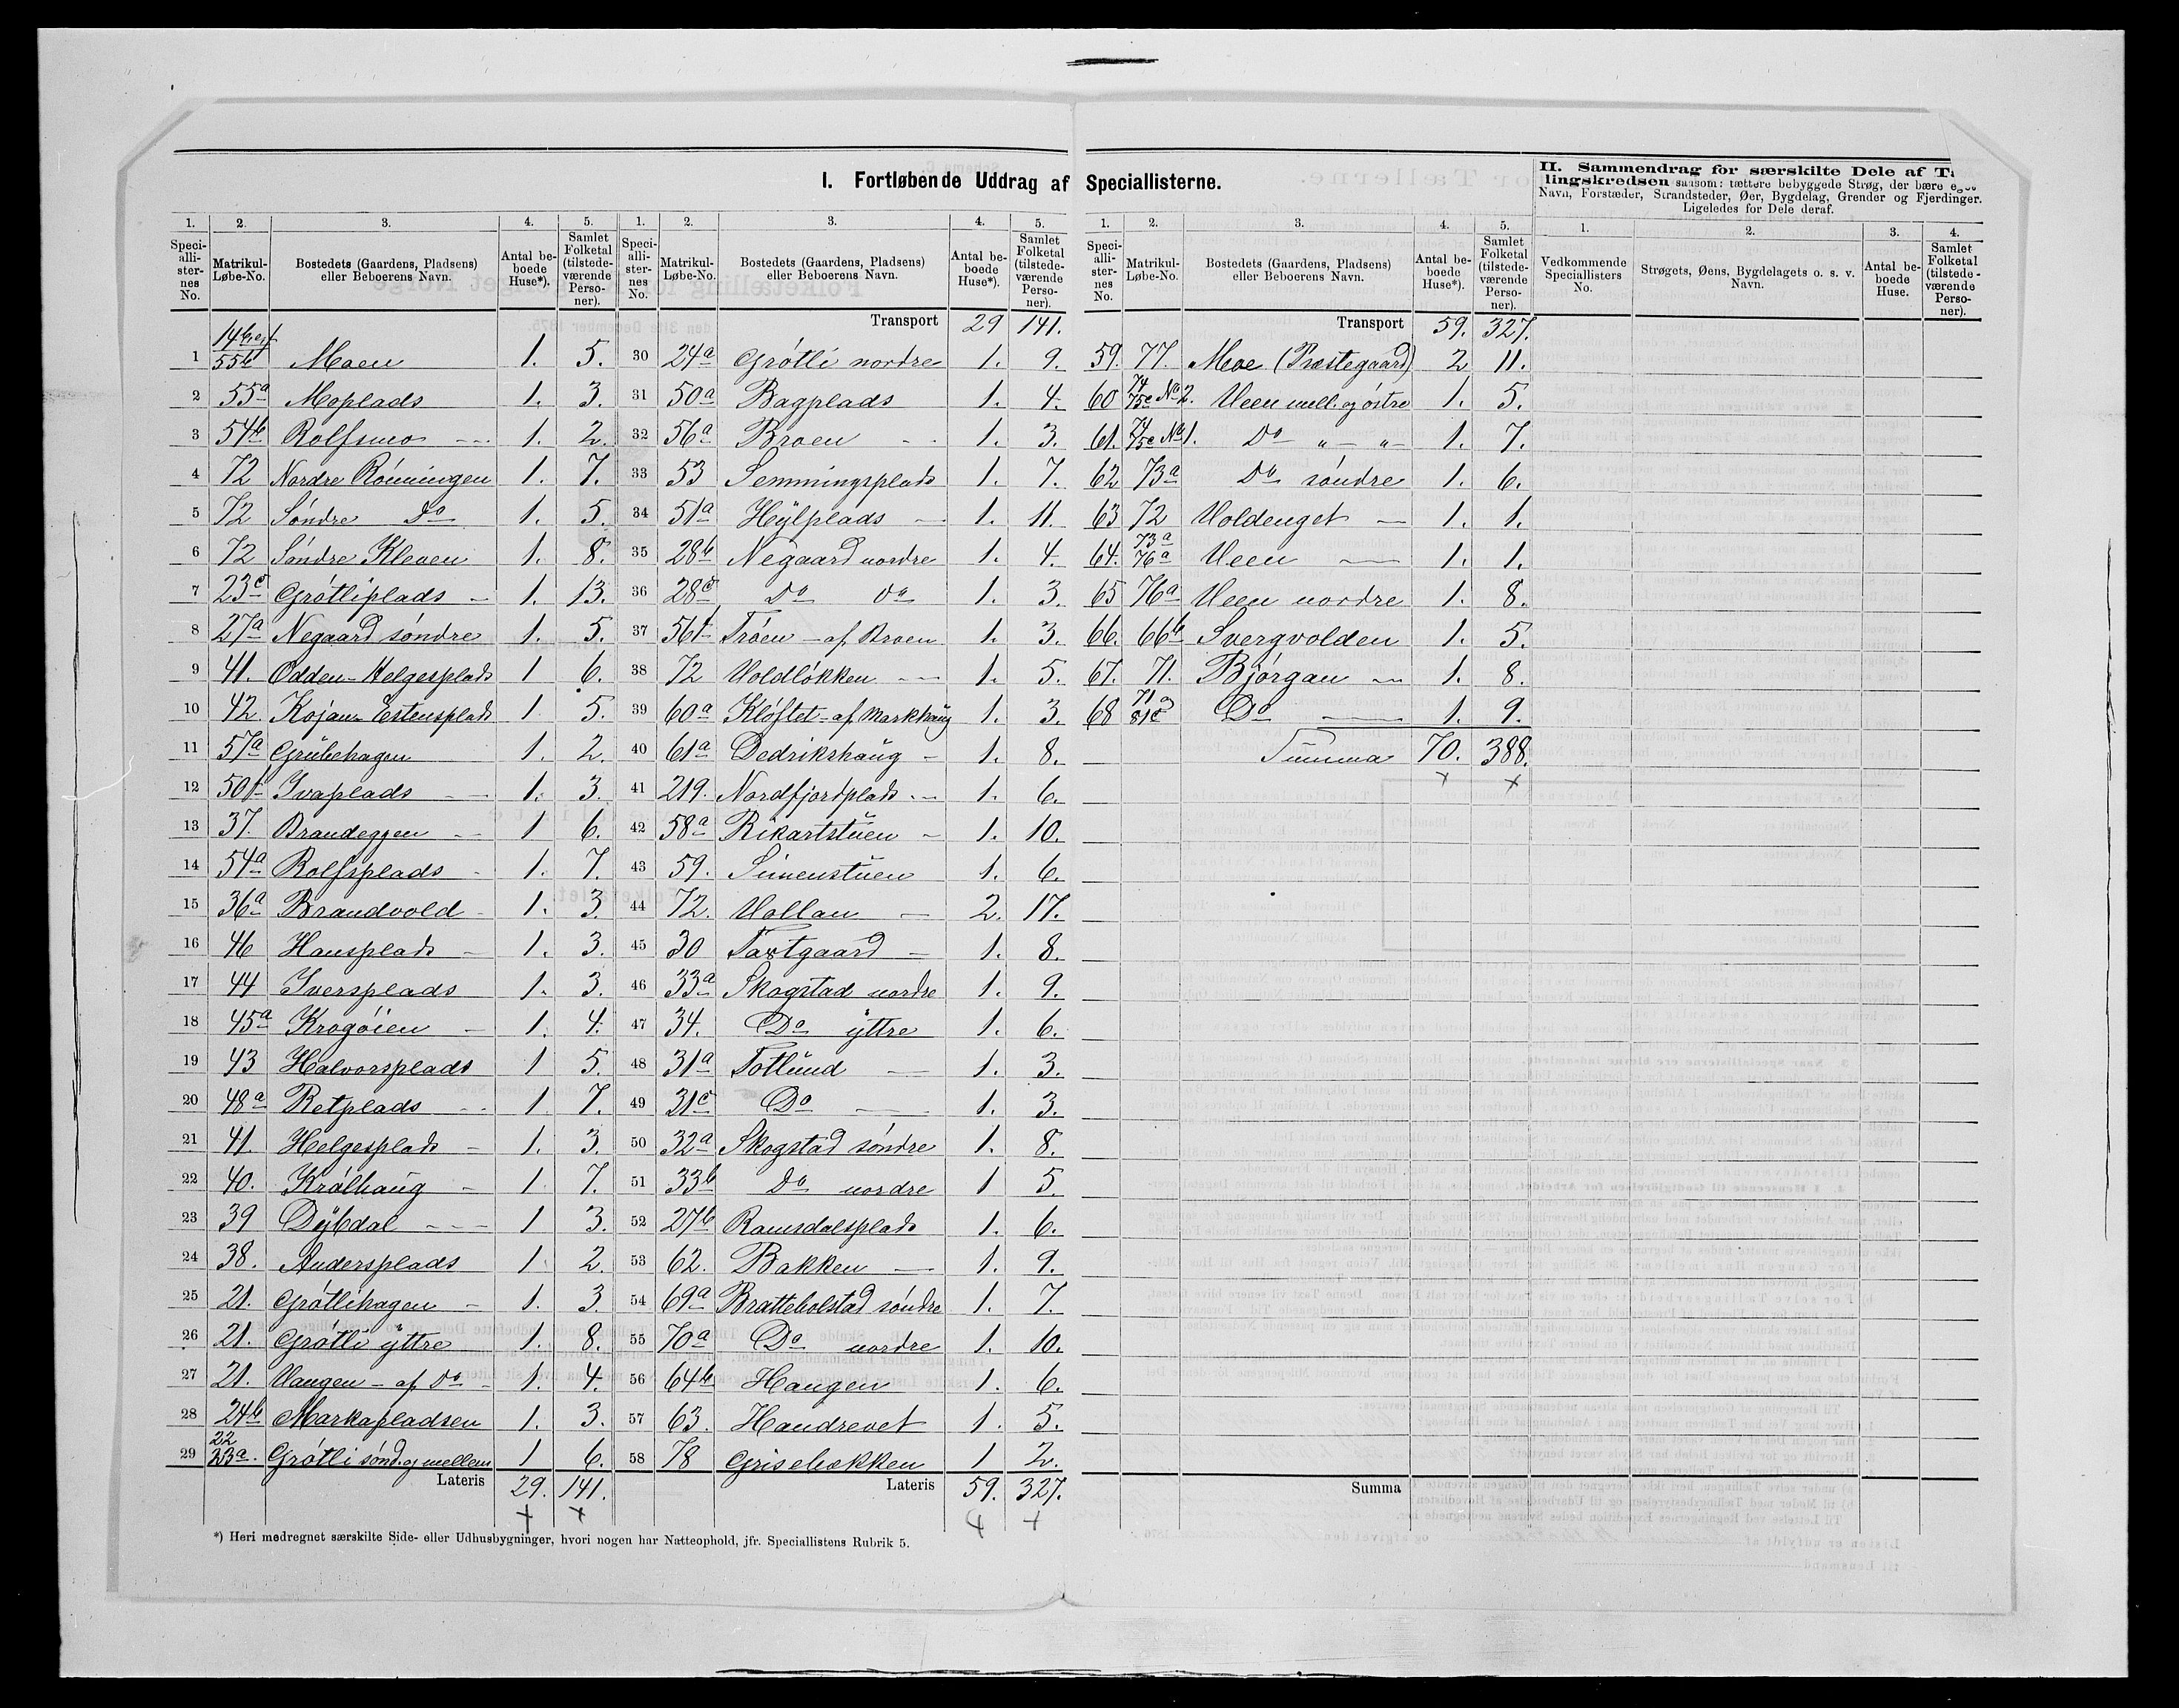 I. Fortløbende Uddrag af Speciallisterne.
II. Sammendrag for særskilte Dele af
lingskredsen saasom: tættere bebyggede Strøg, der bære eget
Navn, Forstæder, Strandsteder, Øer, Bygdelag, Grender og Fjerdinger.
Ligeledes for Dele deraf.
1. 2. 3. 4. 5.
Speciallisternes No. Matrikul-Løbe-No. Bostedets (Gaardens, Pladsens) eller Beboerens Navn. Antal beboede Huse*). Samlet Folketal (tilstedeværende Personer).
1 55b Moen 1. 5.
2 55a Moplads 1. 3.
3 54b Rolfsmo 1. 2.
4 72 Nordre Rönningen 1. 7.
5 72 Söndre Do 1. 5.
6 72 Söndre Kleven 1. 8.
7 23c Grötliplads 1. 13.
8 27a Negaard söndre 1. 5.
9 41. Odden - Helgesplads 1 6.
10 42. Kojan - Estensplads 1 5.
11 57a Grubehagen 1. 2.
12 50b Ivaplads 1. 3.
13 37. Brandeggen 1 6.
14 54a Rolfsplads 1. 7.
15 36a Brandvold 1. 3.
16 46 Hansplads 1. 3.
17 44 Iversplads 1. 3.
18 45a Krogöien 1. 4.
19 43 Halvorsplads 1 5.
20 48a Retplads 1. 7.
21 41. Helgesplads 1. 3.
22 40. Kråkhaug 1 7.
23 39 Dybdal 1 3.
24 38. Andersplads 1 2.
25 21. Grötlihagen 1. 3.
26 21. Grötli yttre 1. 8.
27 21. Vangen - af Do 1. 4.
28 24b Markapladsen 1. 3.
29 22 23a. Grötli sönd. og mellem 1 6.
Lateris 29. 141.
1. 2. 3. 4. 5.
Speciallisternes No. Matrikul-Løbe-No. Bostedets (Gaardens, Pladsens) eller Beboerens Navn. Antal beboede Huse*). Samlet Folketal (tilstedeværende Personer).
Transport 29 141.
30 24a Grötli nordre 1. 9.
31 50a Bagplads 1. 4.
32 56a Broen 1. 3.
33 53 Semmingsplads 1. 7.
34 51a Hylplads 1. 11.
35 28b Negaard nordre 1. 4.
36 28c Do Do 1. 3.
37 56b Tröen - af Broen 1. 3.
38 72 Voldlökken 1. 5.
39 60a Klöftet - af Markhaug 1. 3.
40 61a Dedrikshaug 1. 8.
41 219. Nordfjordplads 1. 6.
42 58a Rikartstuen 1. 10.
43 59. Simenstuen 1. 6.
44 72. Vollan 2. 17.
45 30 Tavtgaard 1. 8.
46 33a Skogstad nordre 1. 9.
47 34. Do yttre 1. 6.
48 31a Totlund 1. 3.
49 31c Do 1. 3.
50 32a Skogstad söndre 1. 8.
51 33b Do nordre 1 5.
52 27b Ramsdalsplads 1. 6.
53 62. Bakken 1. 9.
54 69a Bratteholstad söndre 1. 7.
55 70a Do nordre 1. 10.
56 64b Haugen 1. 6.
57 63. Haudrevet 1. 5.
58 78 Grisebækken 1 2.
Lateris 59. 327.
1. 2. 3. 4. 5.
Speciallisternes No. Matrikul-Løbe-No. Bostedets (Gaardens, Pladsens) eller Beboerens Navn. Antal beboede Huse*). Samlet Folketal (tilstedeværende Personer).
Transport 59. 327.
59. 77. Moe (Præstegaard) 2 11.
60 74 75c No 2. Veen mell. og östre 1. 5.
61. 74 75c No 1. Do " - " - 1. 7.
62 73a Do söndre 1. 6.
63 72 Voldenget 1. 1.
64. 73a 76a Veen 1. 1.
65 76a Veen nordre 1. 8.
66. 66b Svergvolden 1. 5.
67. 71. Bjørgan 1. 8.
68 71 81c Do 1. 9.
Summa 70. 388.
Summa
1. 2. 3. 4.
Vedkommende Speciallisters No. Strøgets, Øens, Bygdelagets o. s. v. Navn. Antal beboede Huse. Samlet Folketal (tilstedeværende Personer).
*) Heri medregnet særskilte Side- eller Udhusbygninger, hvori nogen har Natteophold, jfr. Speciallistens Rubrik 5.